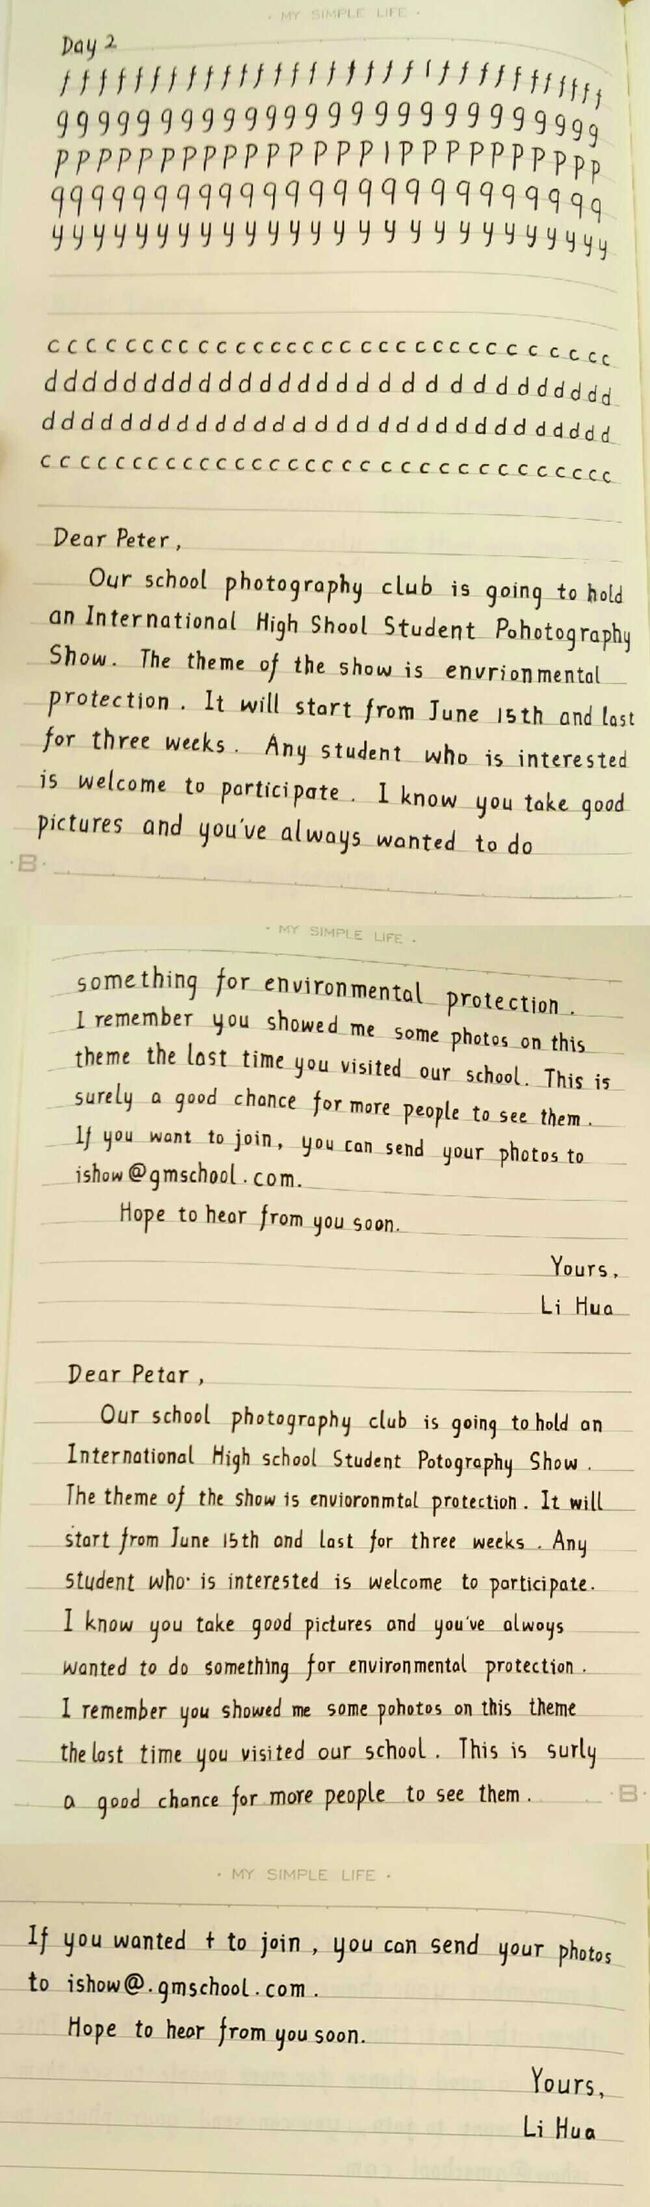 · MY SIMPLE LIFE ·
Day 2
f f f f f f f f f f f f f f f f f f f f l f f f f f f f f f f f
g g g g g g g g g g g g g g g g g g g g g g g g g g g
p p p p p p p p p p p p p p p p l p p p p p p p p p p
q q q q q q q q q q q q q q q q q q q q q q q q q
y y y y y y y y y y y y y y y y y y y y y y y y y y
c c c c c c c c c c c c c c c c c c c c c c c c c c c c c c
d d d d d d d d d d d d d d d d d d d d d d d d d d d d d
d d d d d d d d d d d d d d d d d d d d d d d d d d d d d
c c c c c c c c c c c c c c c c c c c c c c c c c c c c c c c
Dear Peter,
Our school photography club is going to hold
an International High Shool Student Pohotography
Show. The theme of the show is envrionmental
protection. It will start from June 15th and last
for three weeks. Any student who is interested
is welcome to participate. I know you take good
pictures and you've always wanted to do
·B·
· MY SIMPLE LIFE ·
something for environmental protection.
I remember you showed me some photos on this
theme the last time you visited our school. This is
surely a good chance for more people to see them.
If you want to join, you can send your photos to
ishow@gmschool.com.
Hope to hear from you soon.
Yours,
Li Hua
Dear Petar,
Our school photography club is going to hold an
International High school Student Potography Show.
The theme of the show is envioronmtal protection. It will
start from June 15th and last for three weeks. Any
student who is interested is welcome to participate.
I know you take good pictures and you've always
wanted to do something for environmental protection.
I remember you showed me some pohotos on this theme
the last time you visited our school. This is surly
a good chance for more people to see them.
·B·
· MY SIMPLE LIFE ·
If you wanted t to join, you can send your photos
to ishow@.gmschool.com.
Hope to hear from you soon.
Yours,
Li Hua